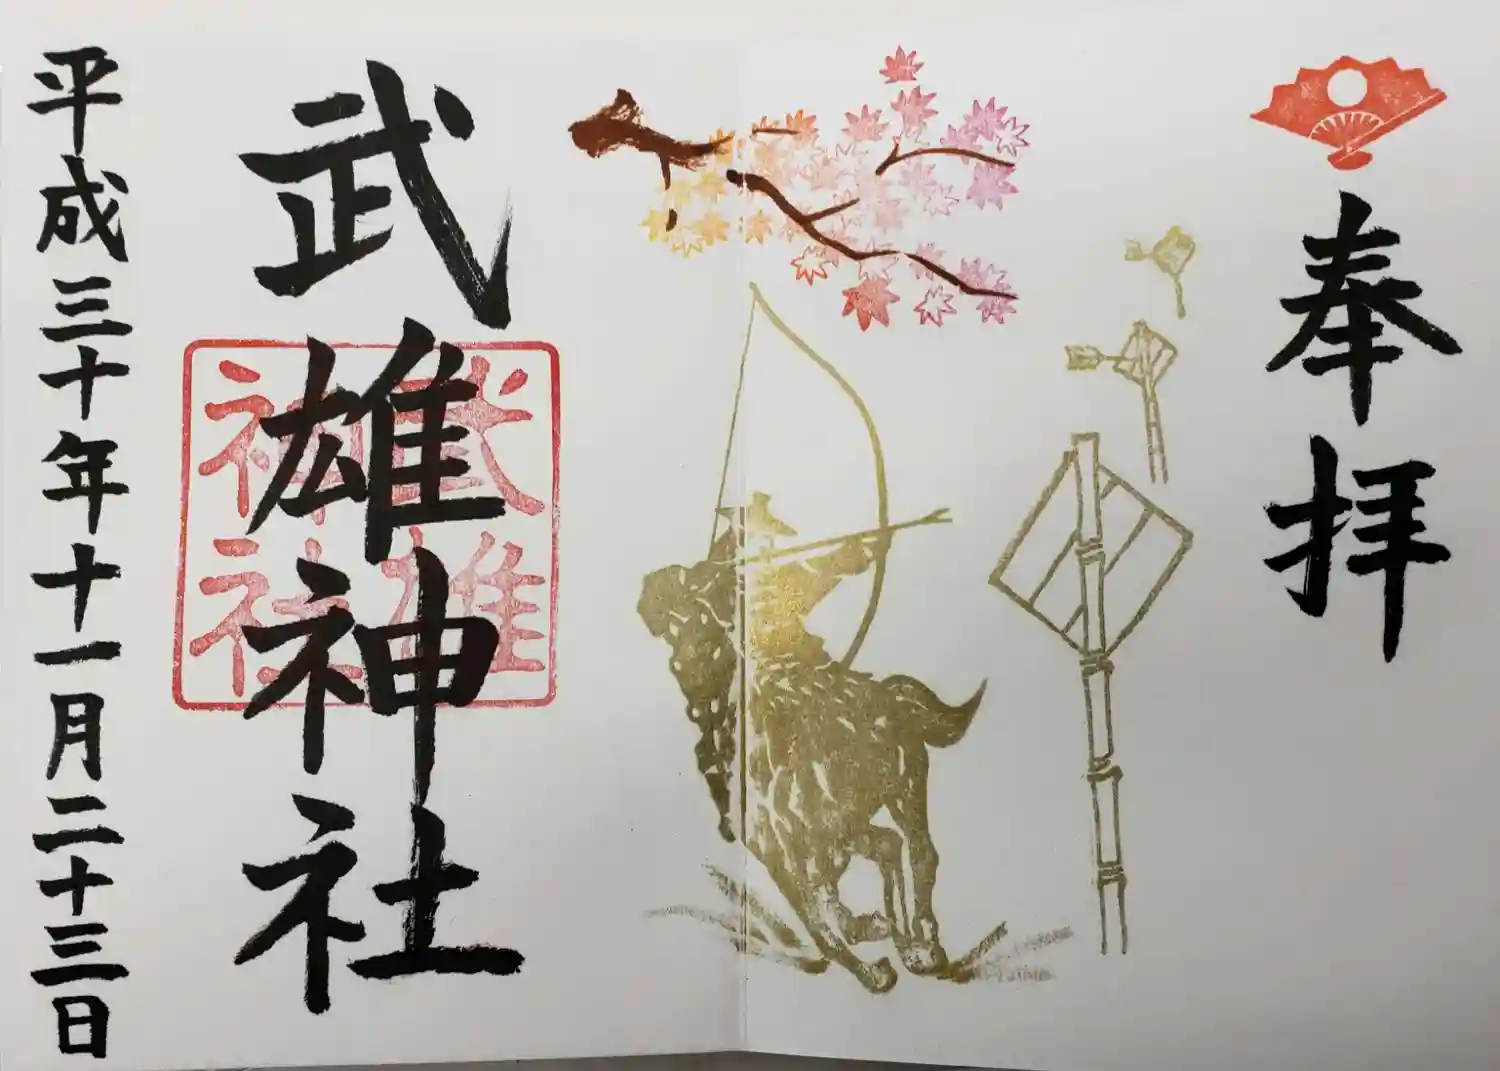 奉拝
武雄神社
武雄
神社
平成三十年十一月二十三日